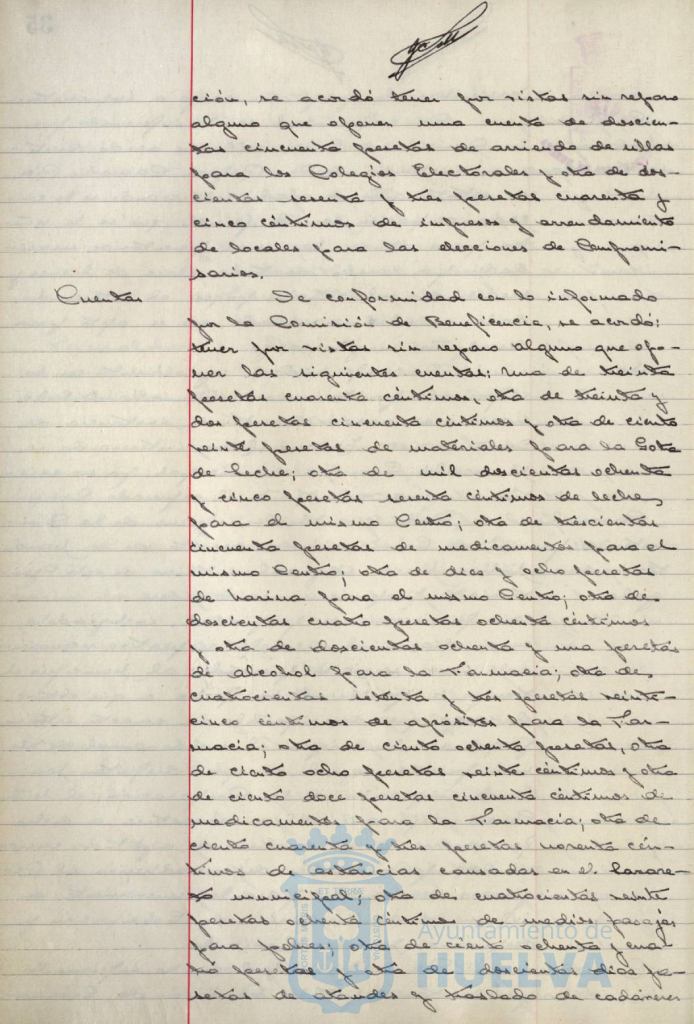 ción, se acordó tener por vistas sin reparo
alguno que oponer una cuenta de doscien-
tas cincuenta pesetas de arriendo de sillas
para los Colegios Electorales y otra de dos-
cientas sesenta y tres pesetas cuarenta y
cinco céntimos de impresos y arrendamiento
de locales para las elecciones de Compromi-
sarios.
Cuentas
De conformidad con lo informado
por la Comisión de Beneficencia, se acordó:
tener por vistas sin reparo alguno que opo-
ner las siguientes cuentas: Una de treinta
pesetas cuarenta céntimos, otra de treinta y
dos pesetas cincuenta céntimos y otra de ciento
veinte pesetas de materiales para la Gota
de leche; otra de mil doscientas ochenta
y cinco pesetas sesenta céntimos de leche,
para el mismo Centro; otra de trescientas
cincuenta pesetas de medicamentos para el
mismo Centro; otra de diez y ocho pesetas
de harina para el mismo Centro; otra de
doscientas cuatro pesetas ochenta céntimos
y otra de doscientas ochenta y una pesetas
de alcohol para la Farmacia; otra de
cuatrocientas setenta y tres pesetas veinte-
cinco céntimos de apósitos para la Far-
macia; otra de ciento ochenta pesetas, otra
de ciento ocho pesetas veinte céntimos y otra
de ciento doce pesetas cincuenta céntimos de
medicamentos para la Farmacia; otra de
ciento cuarenta y tres pesetas noventa cén-
timos de estancias causadas en el Lazare-
to municipal; otra de cuatrocientas veinte
pesetas ochenta céntimos de medios pasajes
para pobres; otra de ciento ochenta y cua-
tro pesetas y otra de doscientas diez pe-
setas de ataudes y traslado de cadáveres
Ayuntamiento de
HUELVA